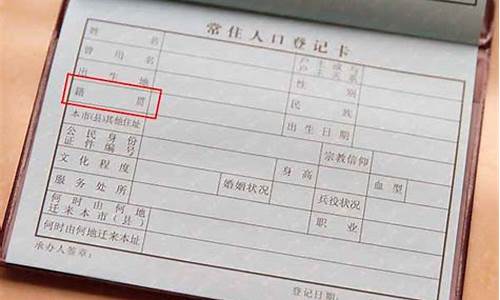 常住人口登记卡
姓名 户主或与户主关系
曾用名 性别
出生地 民族
籍贯 出生日期
本市(县)其他住址 宗教信仰
公民身份证件编号 身高 血型
文化程度 婚姻状况 兵役状况
服务处所 职业
何时由何地迁来本市(县)
何时由何地迁来本址
承办人签章: 登记日期: